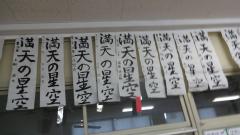 満天の星空
満天の星空
満天の星空
満天の星空
満天の星空
満天の星空
満天の星空
満天の星空